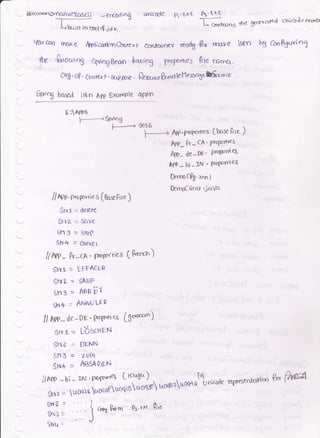 native2ascii -encoding unicode P1.txt P2.txt
built in tool of jdk
contains the generated unicode numbers
You can make ApplicationContext container ready for make i18n by configuring
the following Spring Bean having properties file names.
org.sf.context.suppoe . ResourceBundleMessageSource
Spring based i18n App Example appn
E:\APPS
Spring
Ses6
App.properties (base file)
App_fr_CA.properties
App_de_DE.properties
App_hi_IN.properties
DemoCfg.xml
DemoClient.java
//App.properties (Base File)
str1 = delete
str2 = save
str3 = stop
str4 = cancel
//App_fr_CA.properties (french)
str1 = EFFACER
str2 = SAUF
str3 = ARRÊT
str4 = ANNULER
//App_de_DE.properties (german)
str1 = LÖSCHEN
str2 = DENN
str3 = zuly
str4 = ABSADEN
//App_hi_IN.properties (Telugu)
str1 =
str2 =
str3 =
copy from P2.txt file
str4 =
unicode representation for